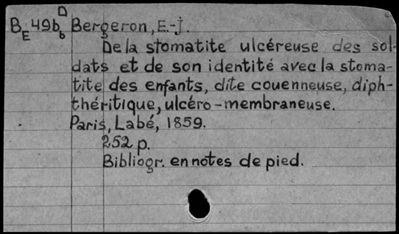 BE49bb D Bergeron, E.-J.
De la stomatite ulcéreuse des sol-
dats et de son identité avec la stoma-
tite des enfants, dite couenneuse, diph-
théritique, ulcéro-membraneuse.
Paris, Labé, 1859.
252 p.
Bibliogr. en notes de pied.